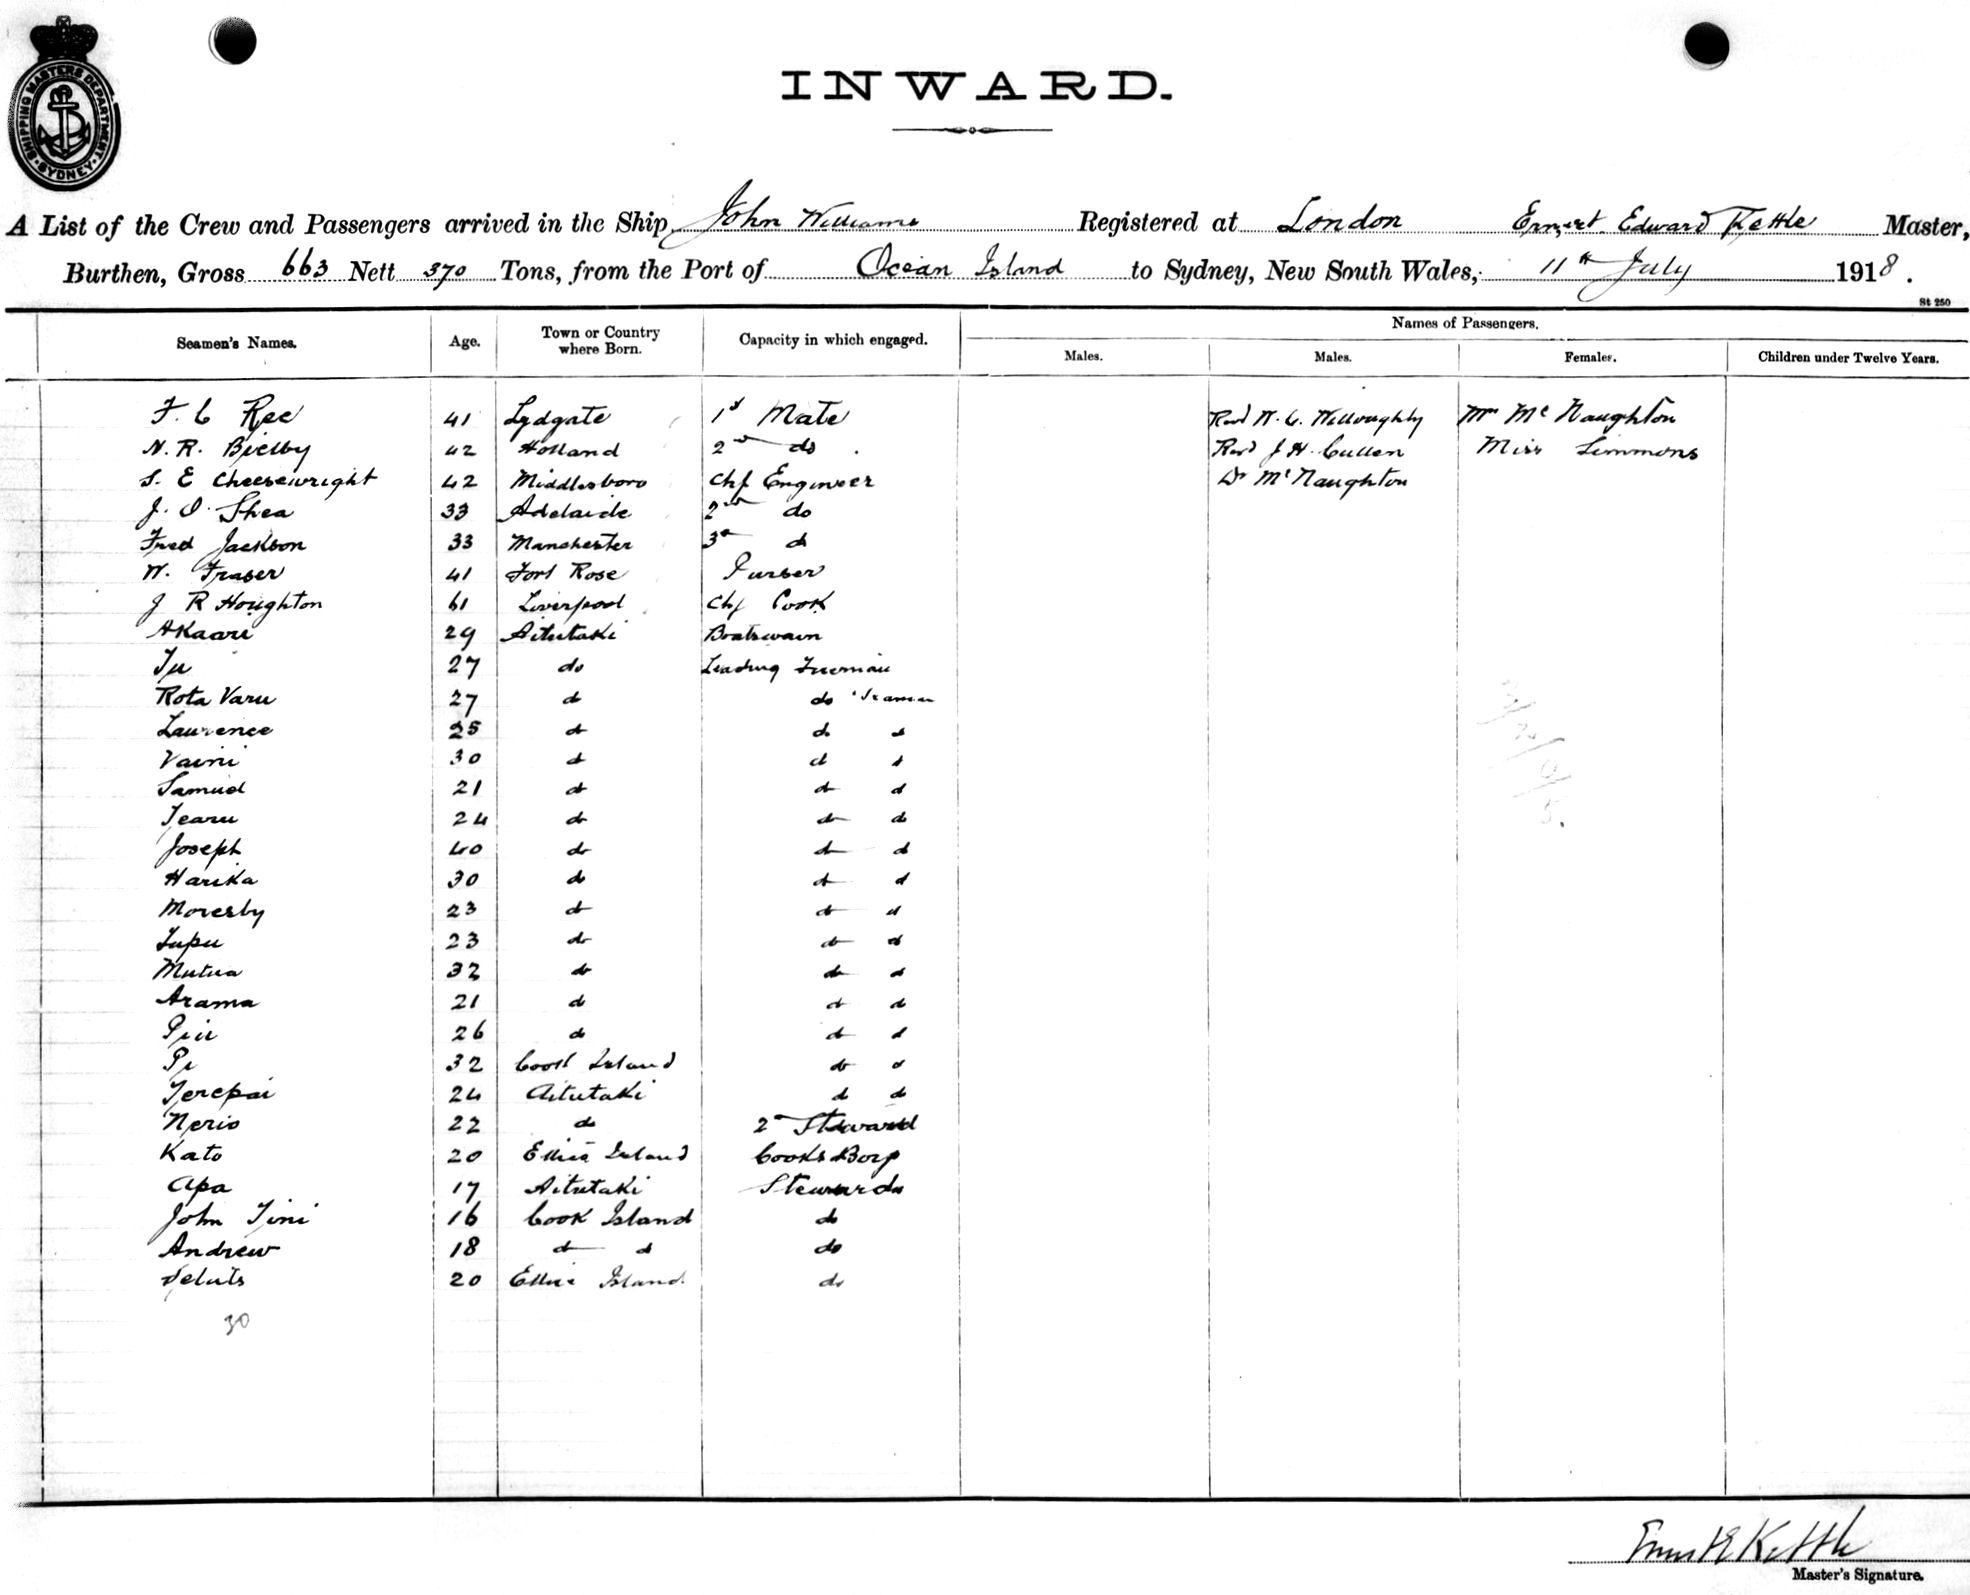 SHIPPING MASTERS DEPARTMENT · SYDNEY ·
INWARD.
A List of the Crew and Passengers arrived in the Ship John Williams Registered at London Ernest Edward Kettle Master,
Burthen, Gross 663 Nett 370 Tons, from the Port of Ocean Island to Sydney, New South Wales, 11th July 1918.
St 250
Seamen's Names. Age. Town or Country where Born. Capacity in which engaged. Names of Passengers.
Males. Males. Females. Children under Twelve Years.
F. C Ree 41 Lydgate 1st Mate Revd W. C. Willoughby Mrs McNaughton
N. R. Bielby 42 Holland 2nd do Revd J H. Cullen Miss Simmons
S. E Cheesewright 42 Middlesboro Chf Engineer Dr McNaughton
J. O. Shea 33 Adelaide 2nd do
Fred Jackson 33 Manchester 3rd do
W. Fraser 41 Fort Rose Purser
J R Houghton 61 Liverpool Chf Cook
Akaari 29 Aitutaki Boatswain
Tu 27 do Leading Fireman
Rota Varu 27 do do Seaman
Laurence 25 do do do
Vaini 30 do do do
Samuel 21 do do do
Tearu 24 do do do
Joseph 40 do do do
Harika 30 do do do
Moresby 23 do do do
Tupu 23 do do do
Mutua 32 do do do
Arama 21 do do do
26 do do do
32 Cook Island do do
Terepai 24 Aitutaki do do
Nerio 22 do 2nd Steward
Kato 20 Ellice Island Cooks Boy
Apa 17 Aitutaki Stewards
John Tini 16 Cook Island do
Andrew 18 do do do
20 Ellice Island do
30
Ernest E Kettle
Master's Signature.